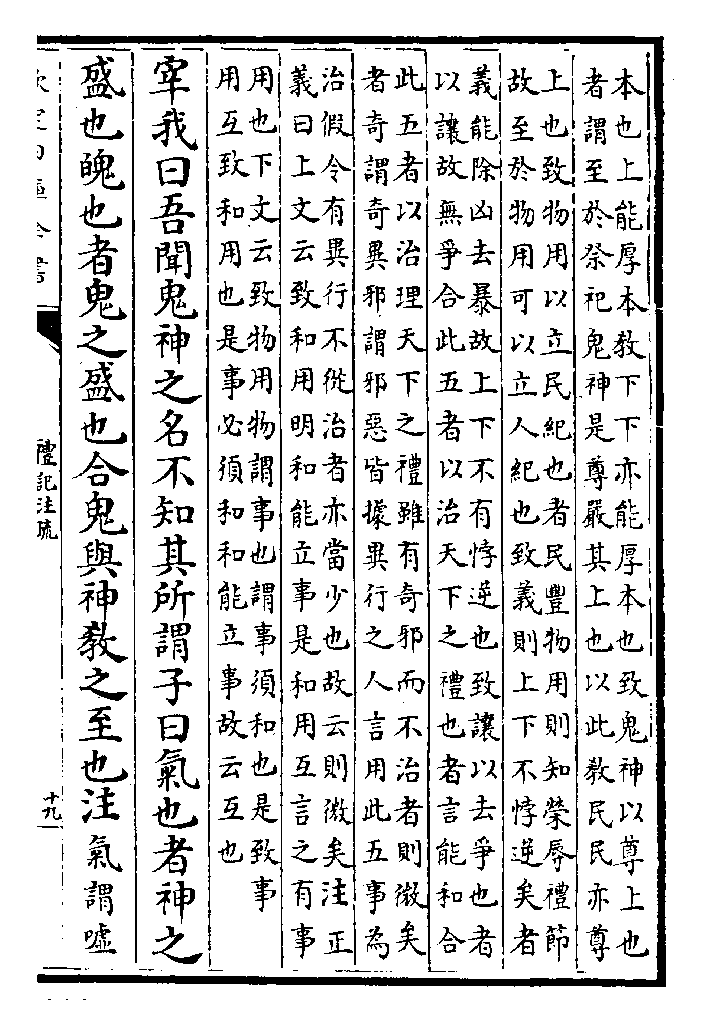 本也上能厚本教下下亦能厚本也致鬼神以尊上也
者謂至於祭祀鬼神是尊嚴其上也以此教民民亦尊
上也致物用以立民紀也者民豐物用則知榮辱禮節
故至於物用可以立人紀也致義則上下不悖逆矣者
義能除凶去暴故上下不有悖逆也致讓以去爭也者
以讓故無爭合此五者以治天下之禮也者言能和合
此五者以治理天下之禮雖有奇邪而不治者則微矣
者奇謂奇異邪謂邪惡皆據異行之人言用此五事為
治假令有異行不從治者亦當少也故云則微矣注正
義曰上文云致和用明和能立事是和用互言之有事
用也下文云致物用物謂事也謂事須和也是致事
用互致和用也是事必須和和能立事故云互也
宰我曰吾聞鬼神之名不知其所謂子曰氣也者神之
盛也魄也者鬼之盛也合鬼與神教之至也注氣謂噓
欽定四庫全書
禮記注疏
十九